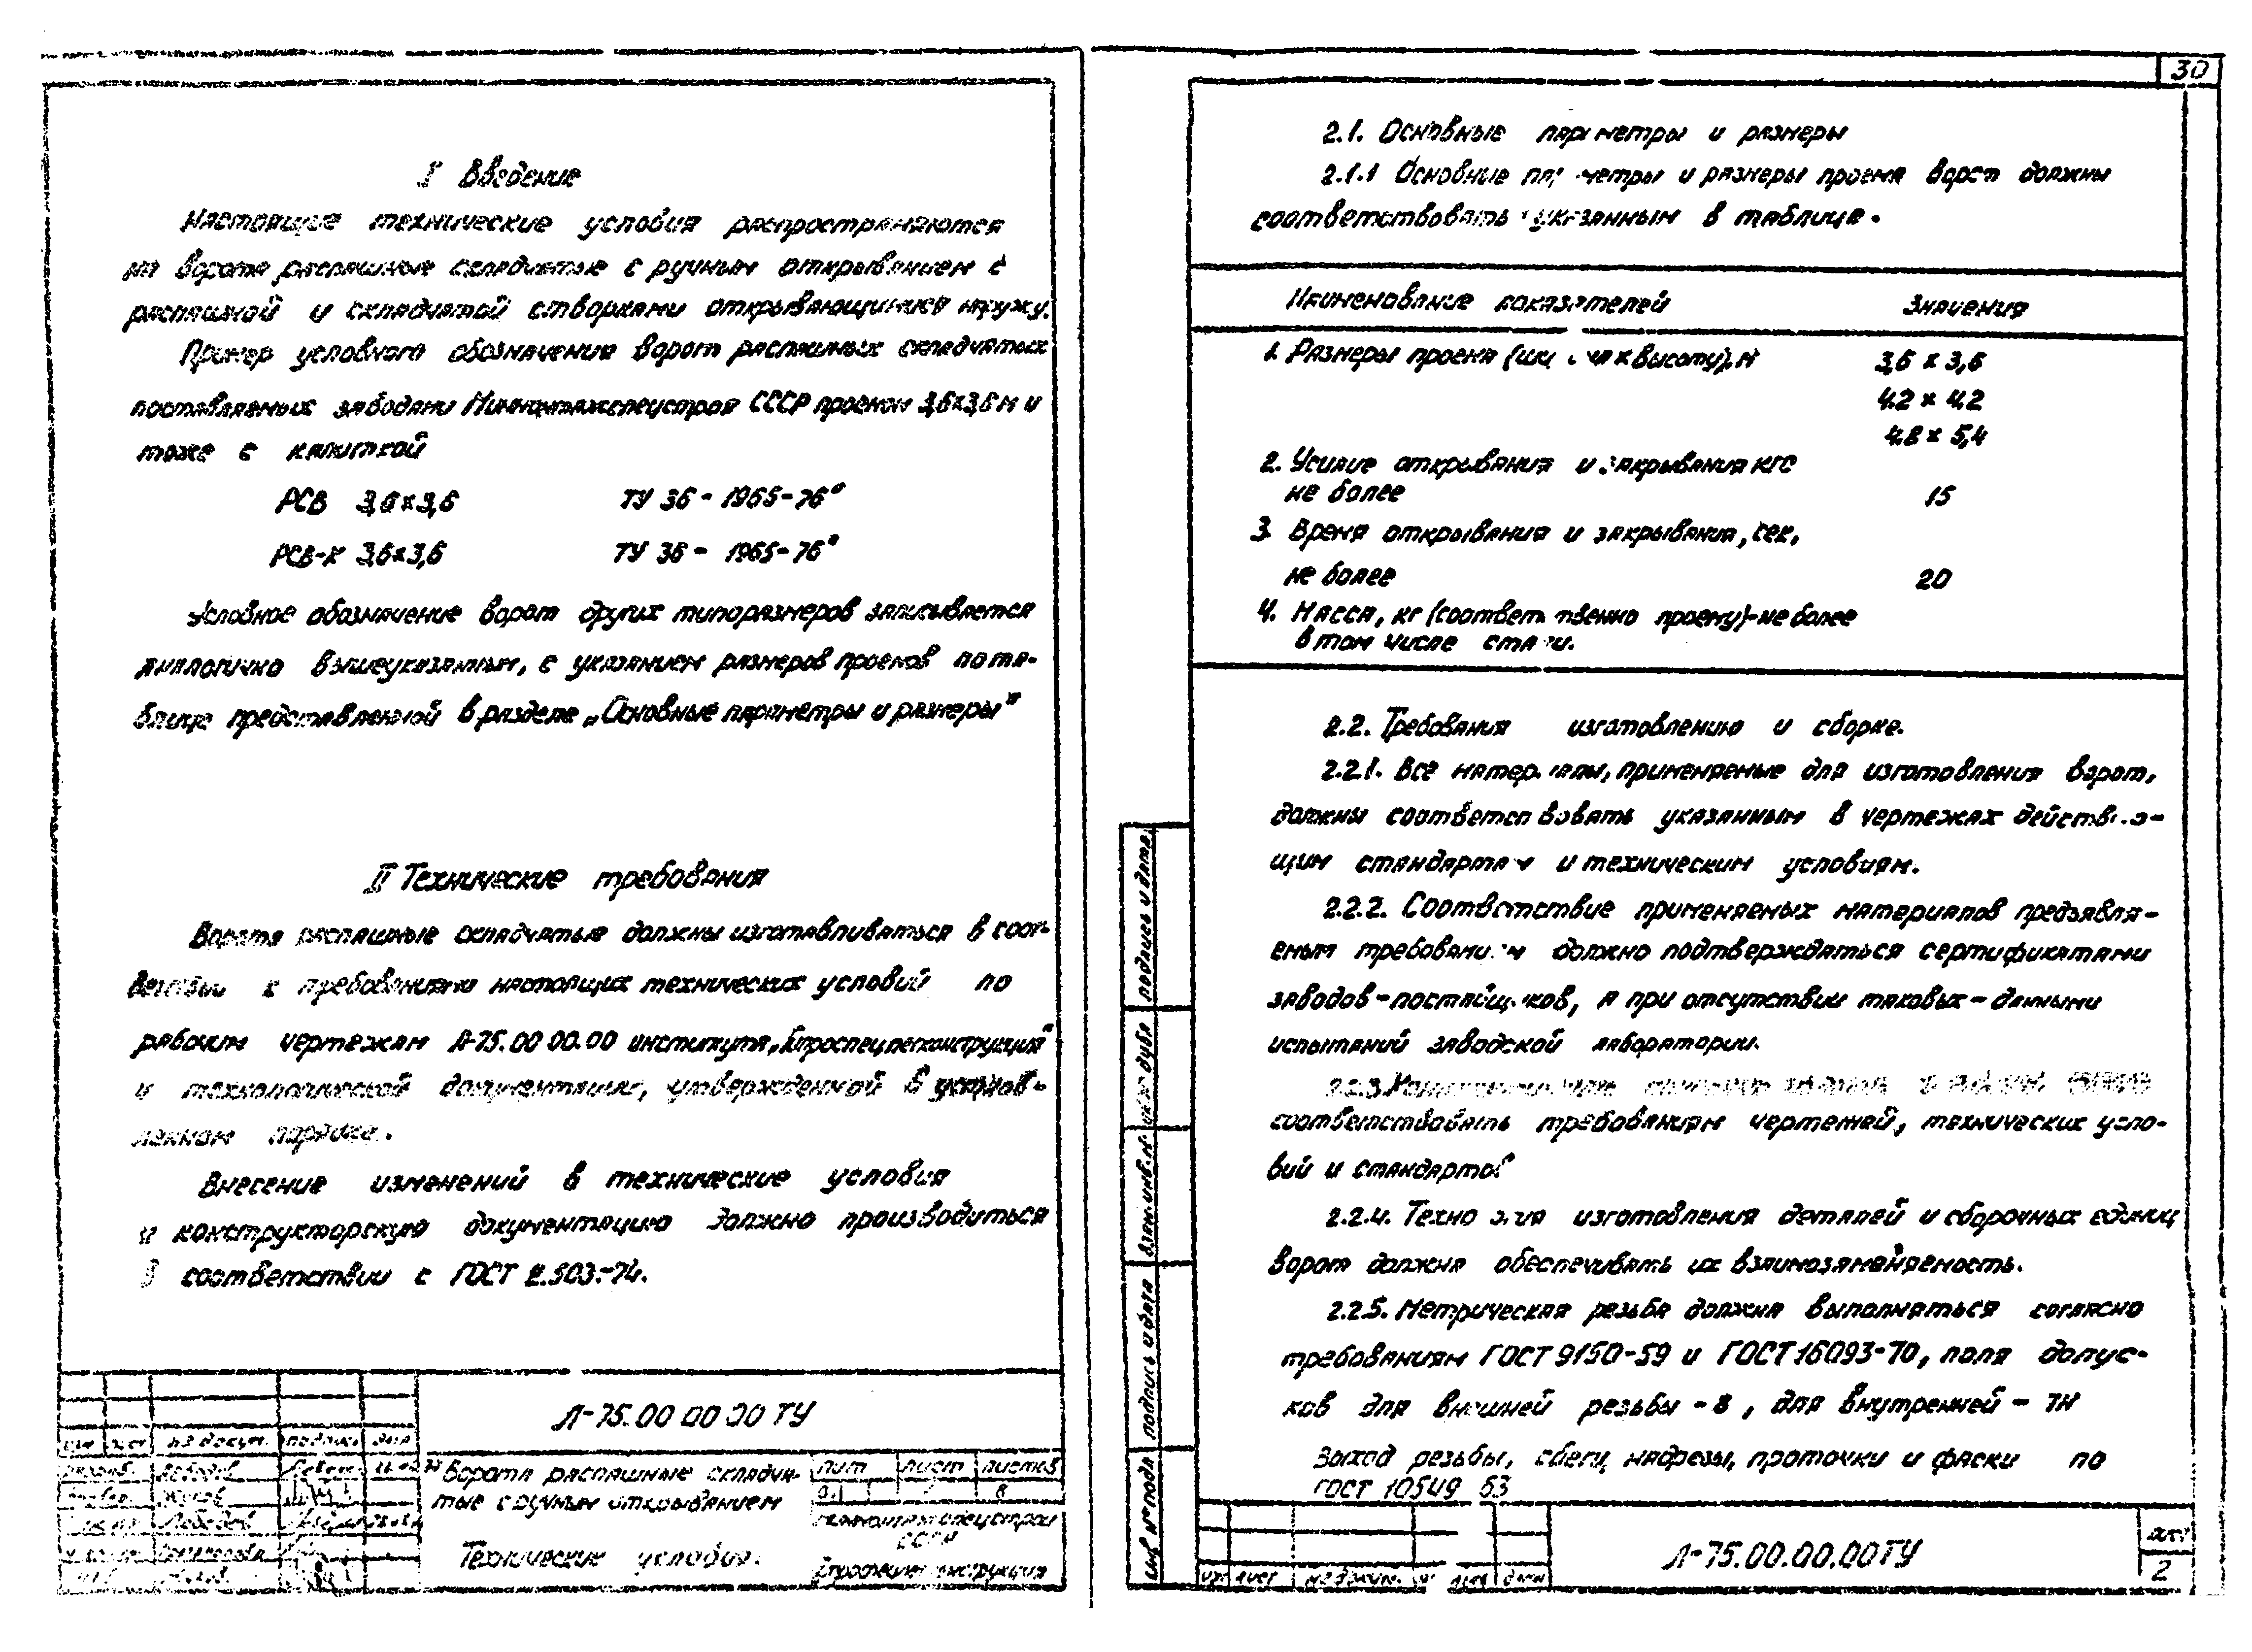 I Введение
Настоящие технические условия распространяются
на ворота распашные складчатые с ручным открыванием с
распашной и складчатой створками открывающимися наружу.
Пример условного обозначения ворот распашных складчатых
поставляемых заводами Минмонтажспецстроя СССР проемом 3,6х3,6 м и
тоже с калиткой
РСВ 3,6х3,6 ТУ 36 - 1965-76°
РСВ-К 3,6х3,6 ТУ 36 - 1965-76°
Условное обозначение ворот других типоразмеров записывается
аналогично вышеуказанным, с указанием размеров проемов по та-
блице представленной в разделе „Основные параметры и размеры"
II Технические требования
Ворота распашные складчатые должны изготавливаться в соот-
к требованиями настоящих технических условий по
рабочим чертежам Л-75.00 00.00 института „Гипроспецлегконструкция"
и технологической документации, утвержденной в установ-
ленном порядке.
Внесение изменений в технические условия
и конструкторскую документацию должно производиться
в соответствии с ГОСТ 2.503.-74.
Л-75.00 00 00 ТУ
изм лист № докум. подпись дата
Ворота распашные складча-
тые с ручным открыванием
Технические условия.
лит лист листов
8
Лебедев
Минмонтажспецстрой
СССР
30
2.1. Основные параметры и размеры
2.1.1 Основные параметры и размеры проема ворот должны
соответствовать указанным в таблице.
Наименование показателей Значения
1. Размеры проема (ширина х высоту), м 3,6 х 3,6
4.2 х 4,2
4,8 х 5,4
2. Усилие открывания и закрывания кгс
не более 15
3. Время открывания и закрывания, сек,
не более 20
4. Масса, кг (соответственно проему)-не более
в том числе стали.
2.2. Требования изготовлению и сборке.
2.2.1. Все материалы, применяемые для изготовления ворот,
должны соответствовать указанным в чертежах действую-
щим стандартам и техническим условиям.
2.2.2. Соответствие применяемых материалов предъявля-
емым требованиям должно подтверждаться сертификатами
заводов-поставщиков, а при отсутствии таковых - данными
испытаний заводской лаборатории.
2.2.3.
соответствовать требованиям чертежей, технических усло-
вий и стандартов
2.2.4. Технология изготовления деталей и сборочных единиц
ворот должна обеспечивать их взаимозаменяемость.
2.2.5. Метрическая резьба должна выполняться согласно
требованиям ГОСТ 9150-59 и ГОСТ 16093-70, поля допус-
ков для внешней резьбы - 8 , для внутренней - 7Н
Выход резьбы, сбеги, надрезы, проточки и фаски по
ГОСТ 10549 63
Подпись и дата
Инв.№ дубл
Взам.инв.№
Подпись и дата
Инв № подл
изм лист № докум. дата
Л-75.00.00.00 ТУ
лист
2